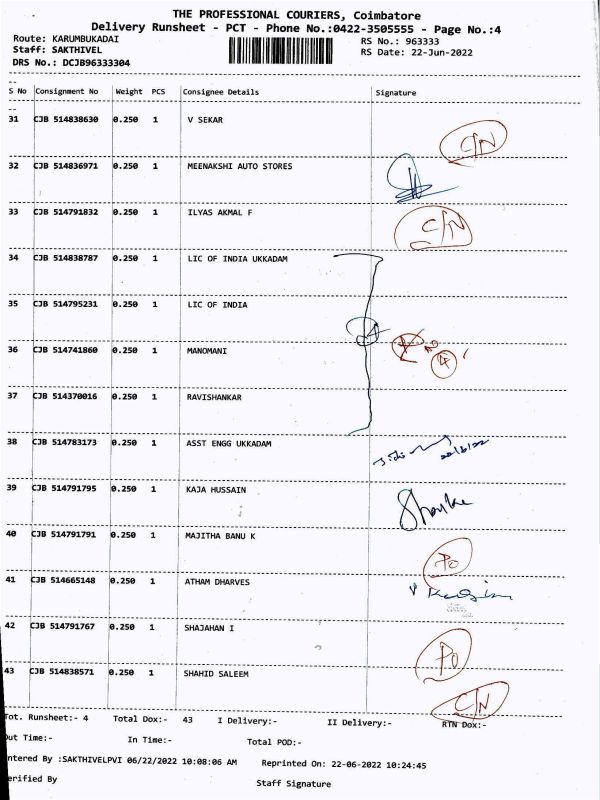 THE PROFESSIONAL COURIERS, Coimbatore
Delivery Runsheet - PCT - Phone No.:0422-3505555 - Page No.:4
Route: KARUMBUKADAI RS No.: 963333
Staff: SAKTHIVEL RS Date: 22-Jun-2022
DRS No.: DCJB96333304
S No Consignment No Weight PCS Consignee Details Signature
31 CJB 514838630 0.250 1 V SEKAR
C/N
32 CJB 514836971 0.250 1 MEENAKSHI AUTO STORES
33 CJB 514791832 0.250 1 ILYAS AKMAL F
C/N
34 CJB 514838787 0.250 1 LIC OF INDIA UKKADAM
35 CJB 514795231 0.250 1 LIC OF INDIA
36 CJB 514741860 0.250 1 MANOMANI
37 CJB 514370016 0.250 1 RAVISHANKAR
38 CJB 514783173 0.250 1 ASST ENGG UKKADAM
22/6/22
39 CJB 514791795 0.250 1 KAJA HUSSAIN
40 CJB 514791791 0.250 1 MAJITHA BANU K
PO
41 CJB 514665148 0.250 1 ATHAM DHARVES
42 CJB 514791767 0.250 1 SHAJAHAN I
PO
43 CJB 514838571 0.250 1 SHAHID SALEEM
C/N
Tot. Runsheet:- 4 Total Dox:- 43 I Delivery:- II Delivery:- RTN Dox:-
Out Time:- In Time:- Total POD:-
ntered By :SAKTHIVELPVI 06/22/2022 10:08:06 AM Reprinted On: 22-06-2022 10:24:45
erified By Staff Signature